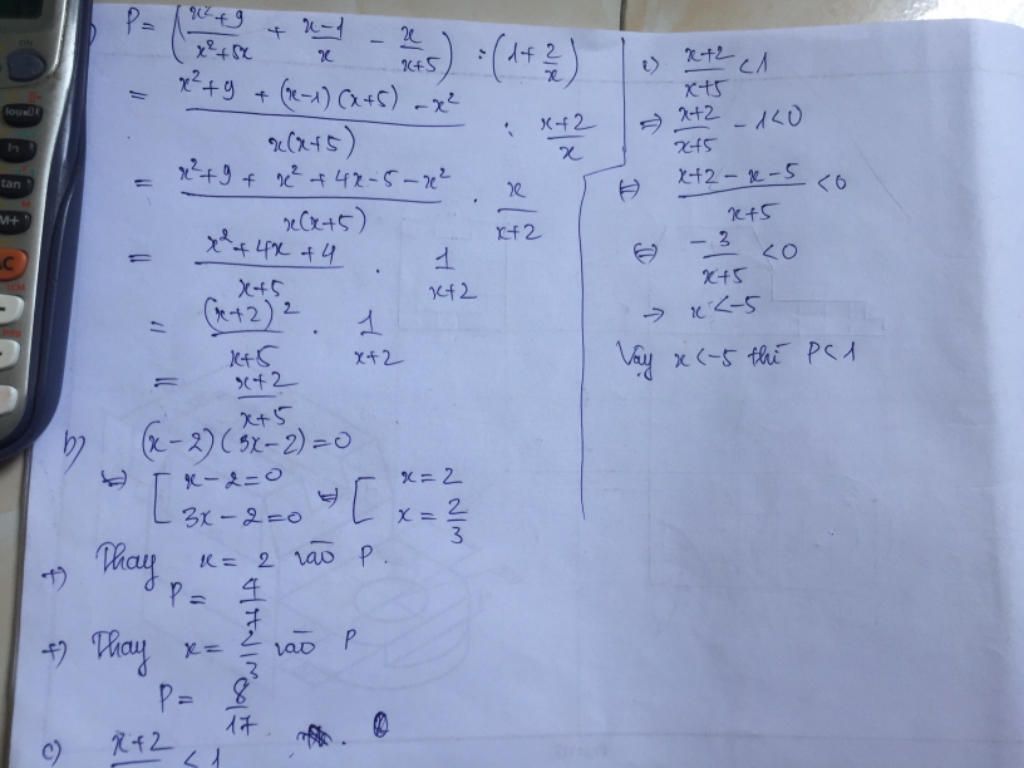 ) P = (\frac{x²+9}{x²+5x} + \frac{x-1}{x} - \frac{x}{x+5}) : (1 + \frac{2}{x})
= \frac{x²+9 + (x-1)(x+5) - x²}{x(x+5)} : \frac{x+2}{x}
= \frac{x²+9 + x²+4x-5-x²}{x(x+5)} . \frac{x}{x+2}
= \frac{x²+4x+4}{x+5} . \frac{1}{x+2}
= \frac{(x+2)²}{x+5} . \frac{1}{x+2}
= \frac{x+2}{x+5}
b) (x-2)(3x-2)=0
⇔ [ x-2=0 ⇔ [ x=2
3x-2=0 x=\frac{2}{3}
+) Thay x = 2 vào P.
P = \frac{4}{7}
+) Thay x = \frac{2}{3} vào P
P = \frac{8}{17}
c) \frac{x+2}{} < 1
c) \frac{x+2}{x+5} < 1
⇒ \frac{x+2}{x+5} - 1 < 0
⇔ \frac{x+2-x-5}{x+5} < 0
⇔ \frac{-3}{x+5} < 0
→ x < -5
Vậy x < -5 thì P < 1
ON
tan
M+
AC